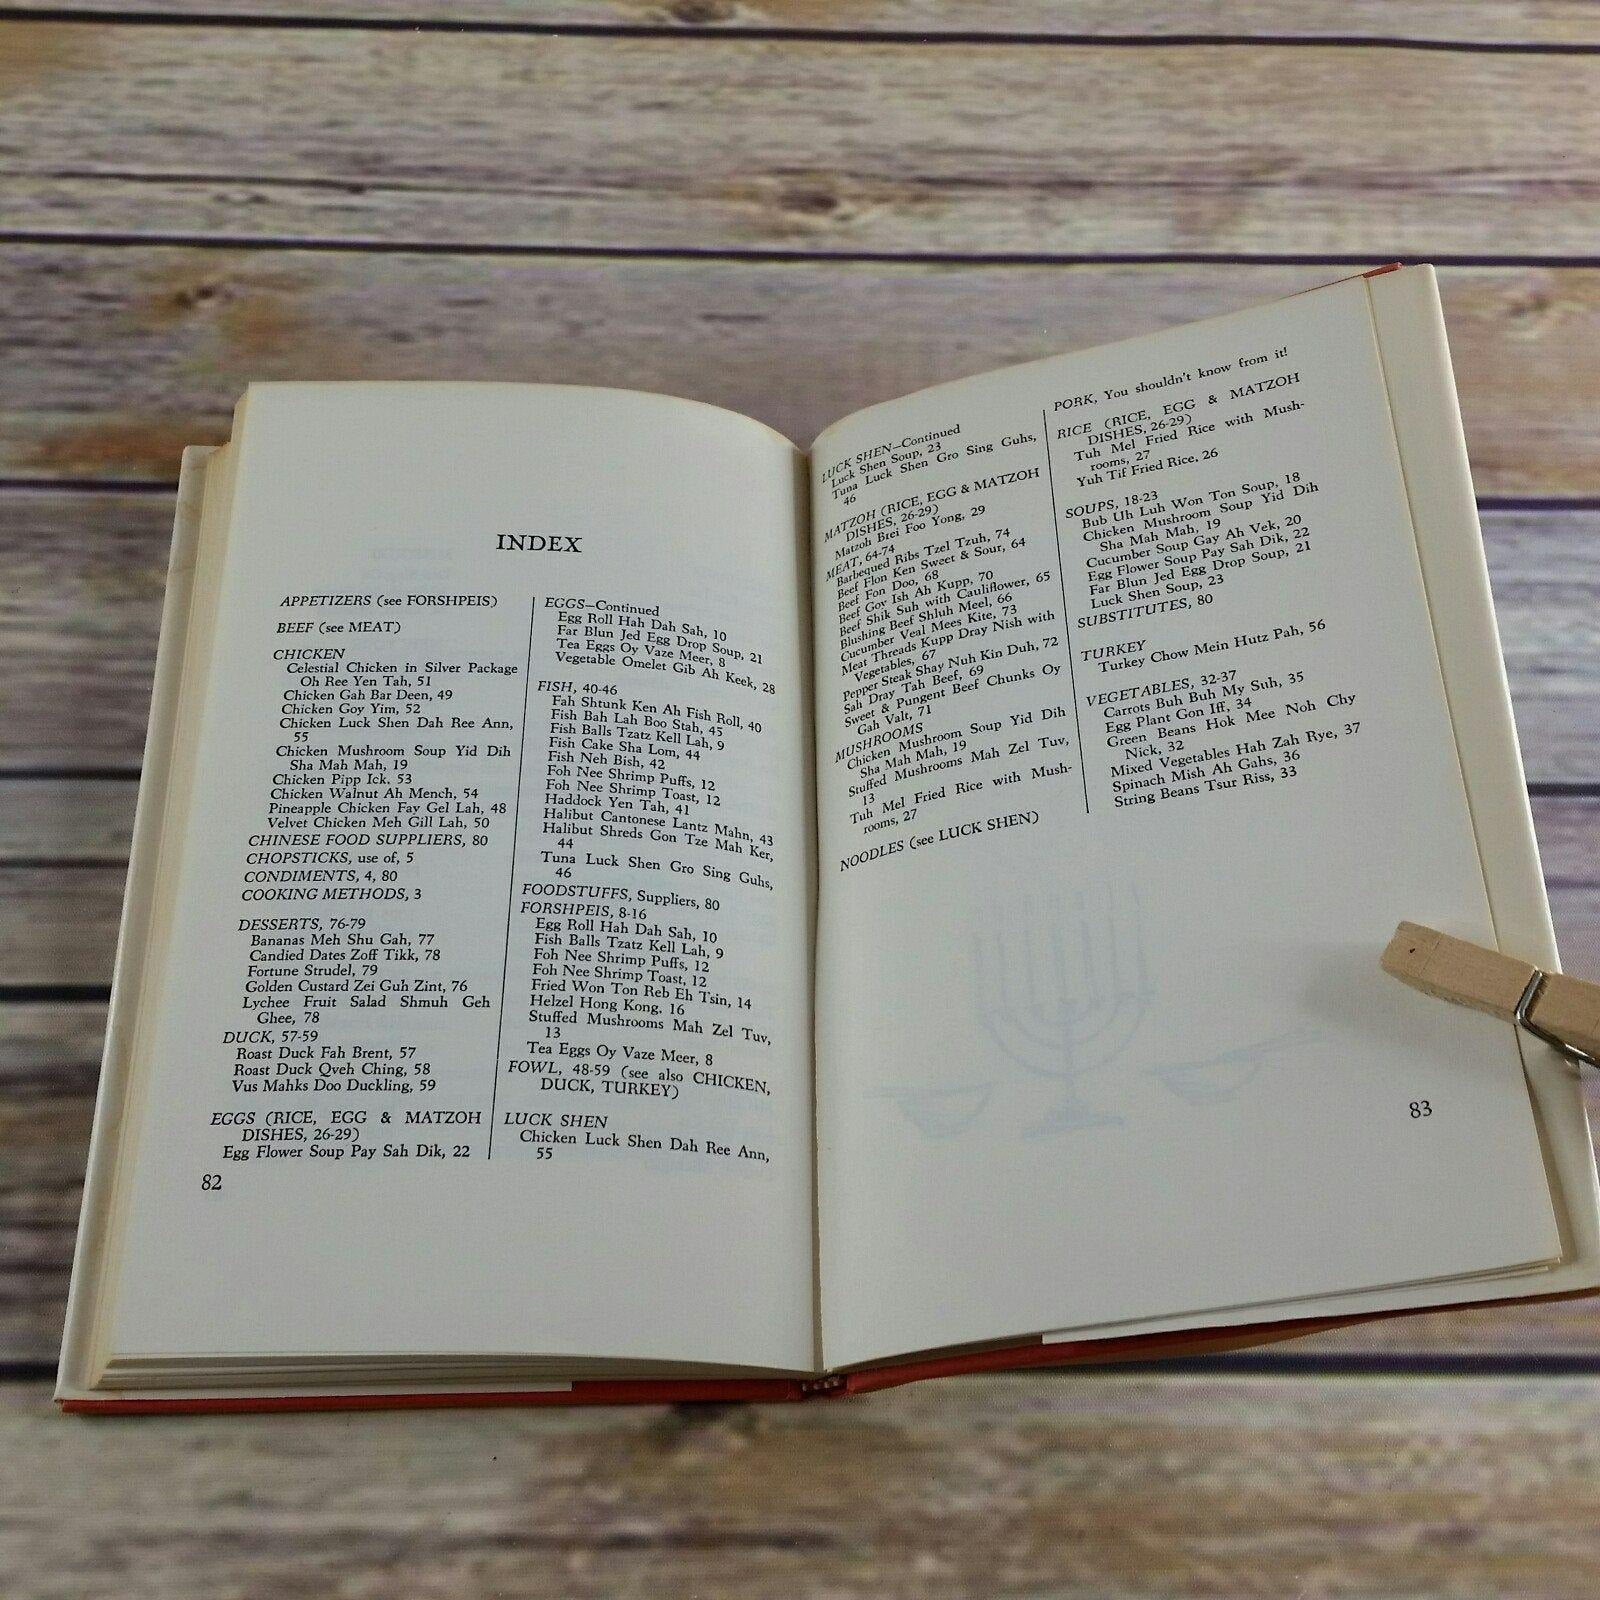 INDEX
APPETIZERS (see FORSHPEIS)
BEEF (see MEAT)
CHICKEN
Celestial Chicken in Silver Package
Oh Ree Yen Tah, 51
Chicken Gah Bar Deen, 49
Chicken Goy Yim, 52
Chicken Luck Shen Dah Ree Ann,
55
Chicken Mushroom Soup Yid Dih
Sha Mah Mah, 19
Chicken Pipp Ick. 53
Chicken Walnut Ah Mench, 54
Pineapple Chicken Fay Gel Lah, 48
Velvet Chicken Meh Gill Lah, 50
CHINESE FOOD SUPPLIERS, 80
CHOPSTICKS, use of, 5
CONDIMENTS, 4, 80
COOKING METHODS, 3
DESSERTS, 76-79
Bananas Meh Shu Gah, 77
Candied Dates Zoff Tikk, 78
Fortune Strudel, 79
Golden Custard Zei Guh Zint, 76
Lychee Fruit Salad Shmuh Geh
Ghee, 78
DUCK, 57-59
Roast Duck Fah Brent, 57
Roast Duck Qveh Ching, 58
Vus Mahks Doo Duckling, 59
EGGS (RICE, EGG & MATZOH
DISHES, 26-29)
Egg Flower Soup Pay Sah Dik, 22
82
EGGS—Continued
Egg Roll Hah Dah Sah, 10
Far Blun Jed Egg Drop Soup, 21
Tea Eggs Oy Vaze Meer, 8
Vegetable Omelet Gib Ah Keek, 28
FISH, 40-46
Fah Shtunk Ken Ah Fish Roll, 40
Fish Bah Lah Boo Stah, 45
Fish Balls Tzatz Kell Lah, 9
Fish Cake Sha Lom, 44
Fish Neh Bish, 42
Foh Nee Shrimp Puffs, 12
Foh Nee Shrimp Toast, 12
Haddock Yen Tah, 41
Halibut Cantonese Lantz Mahn, 43
Halibut Shreds Gon Tze Mah Ker,
44
Tuna Luck Shen Gro Sing Guhs,
46
FOODSTUFFS, Suppliers, 80
FORSHPEIS, 8-16
Egg Roll Hah Dah Sah, 10
Fish Balls Tzatz Kell Lah, 9
Foh Nee Shrimp Puffs, 12
Foh Nee Shrimp Toast, 12
Fried Won Ton Reb Eh Tsin, 14
Helzel Hong Kong, 16
Stuffed Mushrooms Mah Zel Tuv,
13
Tea Eggs Oy Vaze Meer, 8
FOWL, 48-59 (see also CHICKEN,
DUCK, TURKEY)
LUCK SHEN
Chicken Luck Shen Dah Ree Ann,
55
LUCK SHEN—Continued
Luck Shen Soup, 23
Tuna Luck Shen Gro Sing Guhs,
46
MATZOH (RICE, EGG & MATZOH
DISHES, 26-29)
Matzoh Brei Foo Yong, 29
MEAT, 64-74
Barbequed Ribs Tzel Tzuh, 74
Beef Flon Ken Sweet & Sour, 64
Beef Fon Doo, 68
Beef Gov Ish Ah Kupp, 70
Beef Shik Suh with Cauliflower, 65
Blushing Beef Shluh Meel, 66
Cucumber Veal Mees Kite, 73
Meat Threads Kupp Dray Nish with
Vegetables, 67
Pepper Steak Shay Nuh Kin Duh, 72
Sah Dray Tah Beef, 69
Sweet & Pungent Beef Chunks Oy
Gah Valt, 71
MUSHROOMS
Chicken Mushroom Soup Yid Dih
Sha Mah Mah, 19
Stuffed Mushrooms Mah Zel Tuv,
13
Tuh Mel Fried Rice with Mush-
rooms, 27
NOODLES (see LUCK SHEN)
PORK, You shouldn't know from it!
RICE (RICE, EGG & MATZOH
DISHES, 26-29)
Tuh Mel Fried Rice with Mush-
rooms, 27
Yuh Tif Fried Rice. 26
SOUPS, 18-23
Bub Uh Luh Won Ton Soup, 18
Chicken Mushroom Soup Yid Dih
Sha Mah Mah, 19
Cucumber Soup Gay Ah Vek, 20
Egg Flower Soup Pay Sah Dik, 22
Far Blun Jed Egg Drop Soup, 21
Luck Shen Soup, 23
SUBSTITUTES, 80
TURKEY
Turkey Chow Mein Hutz Pah, 56
VEGETABLES, 32-37
Carrots Buh Buh My Suh, 35
Egg Plant Gon Iff, 34
Green Beans Hok Mee Noh Chy
Nick, 32
Mixed Vegetables Hah Zah Rye, 37
Spinach Mish Ah Gahs, 36
String Beans Tsur Riss, 33
83